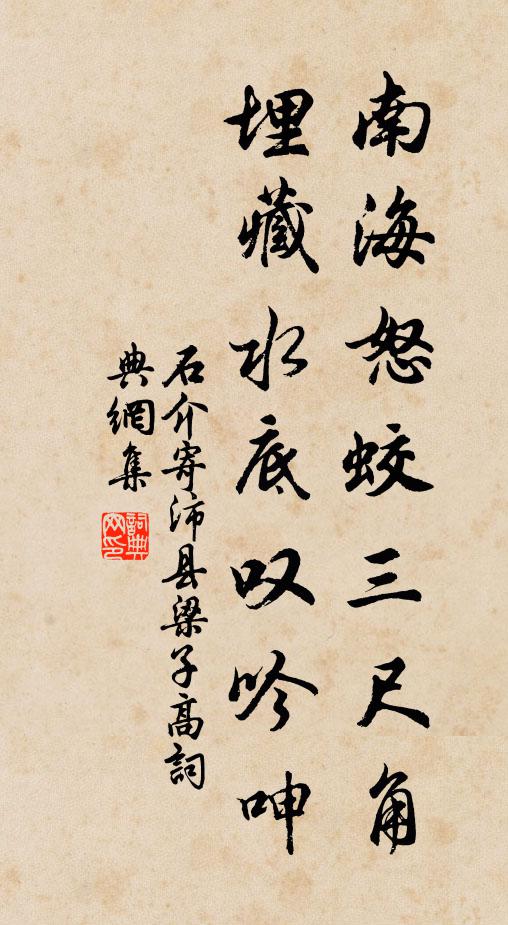 南海怒蛟三尺角
埋藏水底叹吟呻
石介寄沛县梁子高詞
典網集
詞典網印